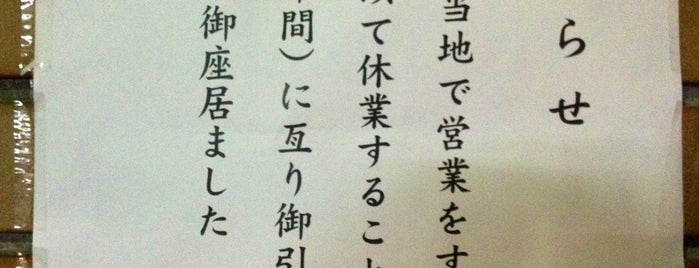 らせ
当地で営業をす
て休業すること
間）に亙り御引
御座居ました